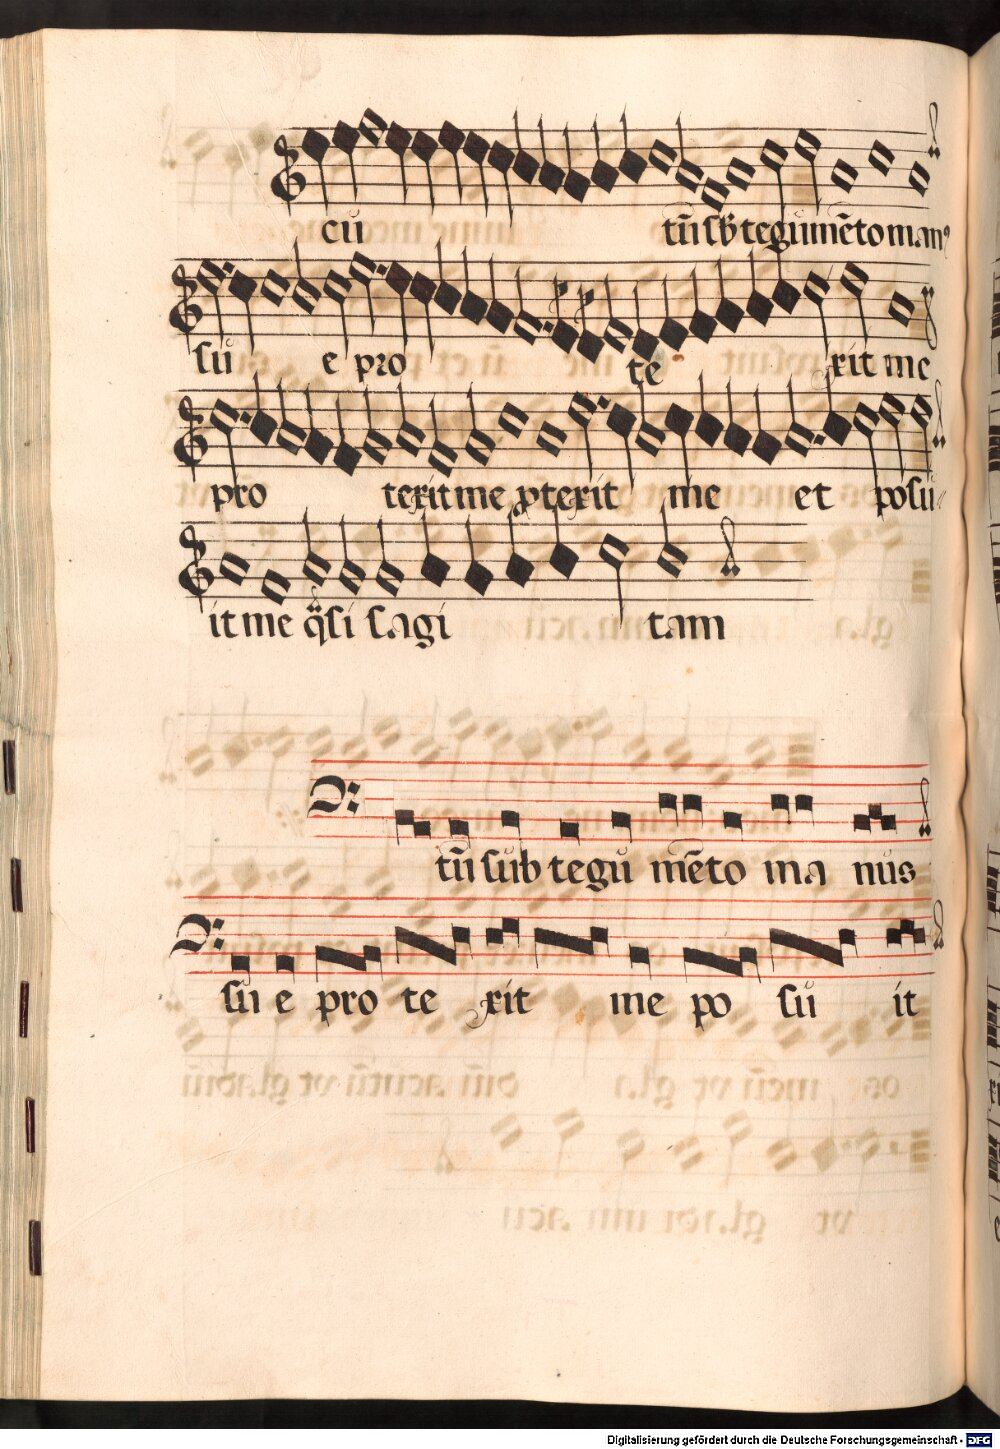 cu tū sb tegumēto man⁹
su e pro te xit me
pro texit me ꝓtexit me et posu
it me q̈si sagi tam
tū sub tegu mēto ma nus
su e pro te xit me po su it
Digitalisierung gefördert durch die Deutsche Forschungsgemeinschaft - DFG